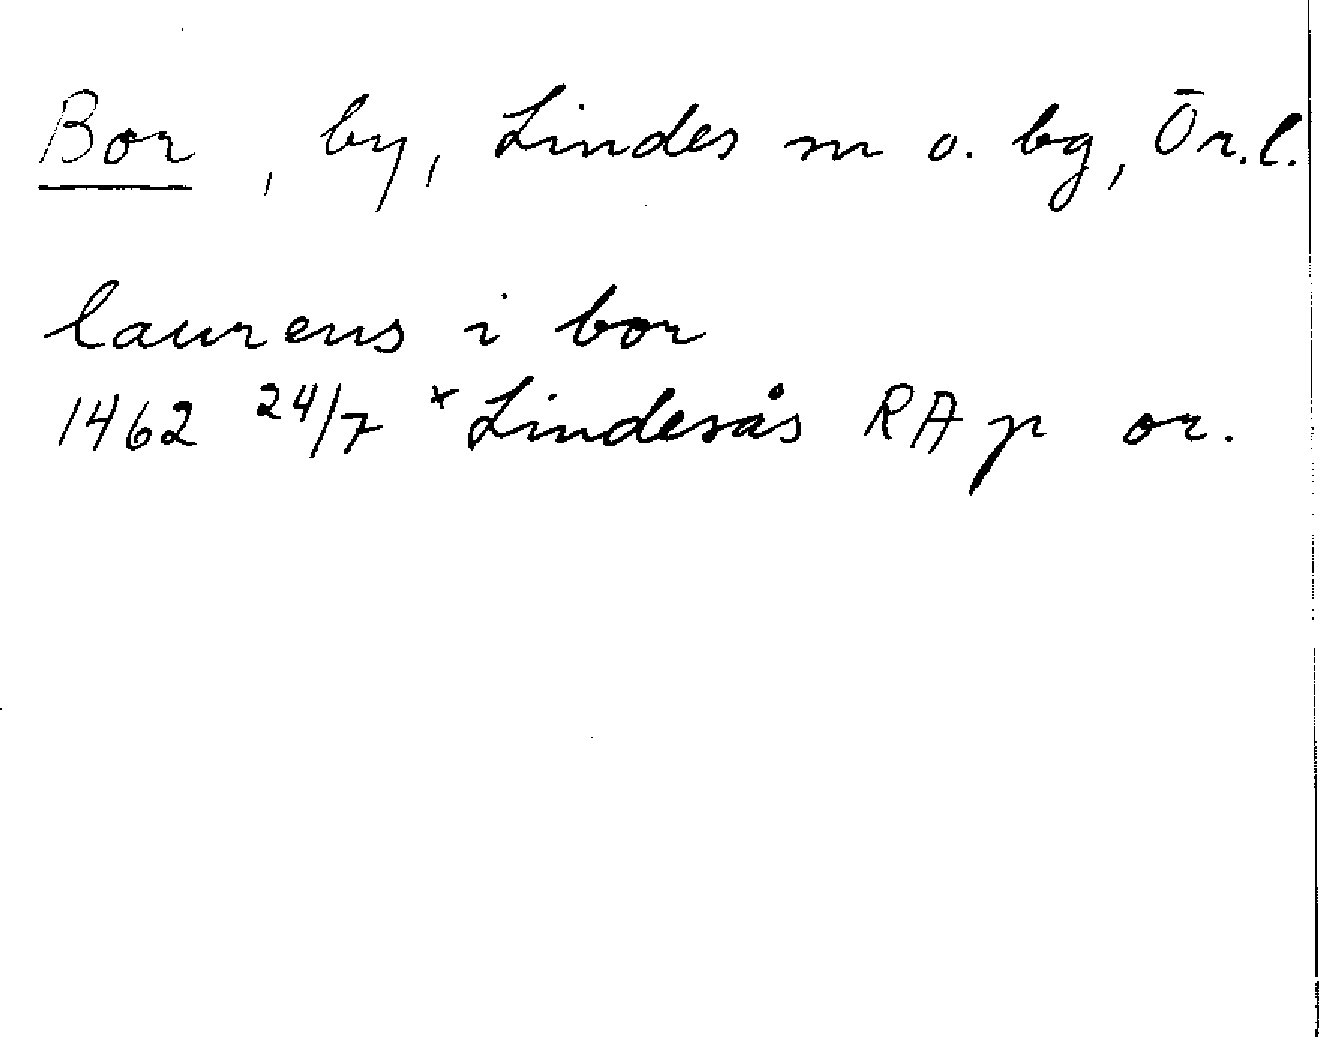 Bor, by, Lindes m o. bg, Ör.l.
laurens i bor
1462 24/7 * Lindesås RA p or.